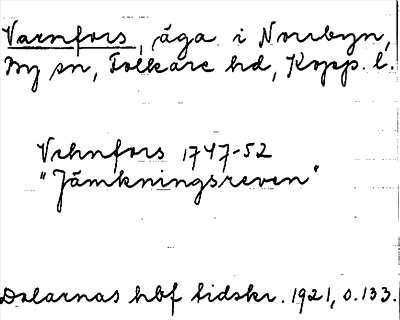 Varnfors, äga i Norrbyn,
By sn, Folkare hd, Kopp. l.
Vehnfors 1747-52
"Jämkningsreven"
Dalarnas hbf tidskr. 1921, s. 133.